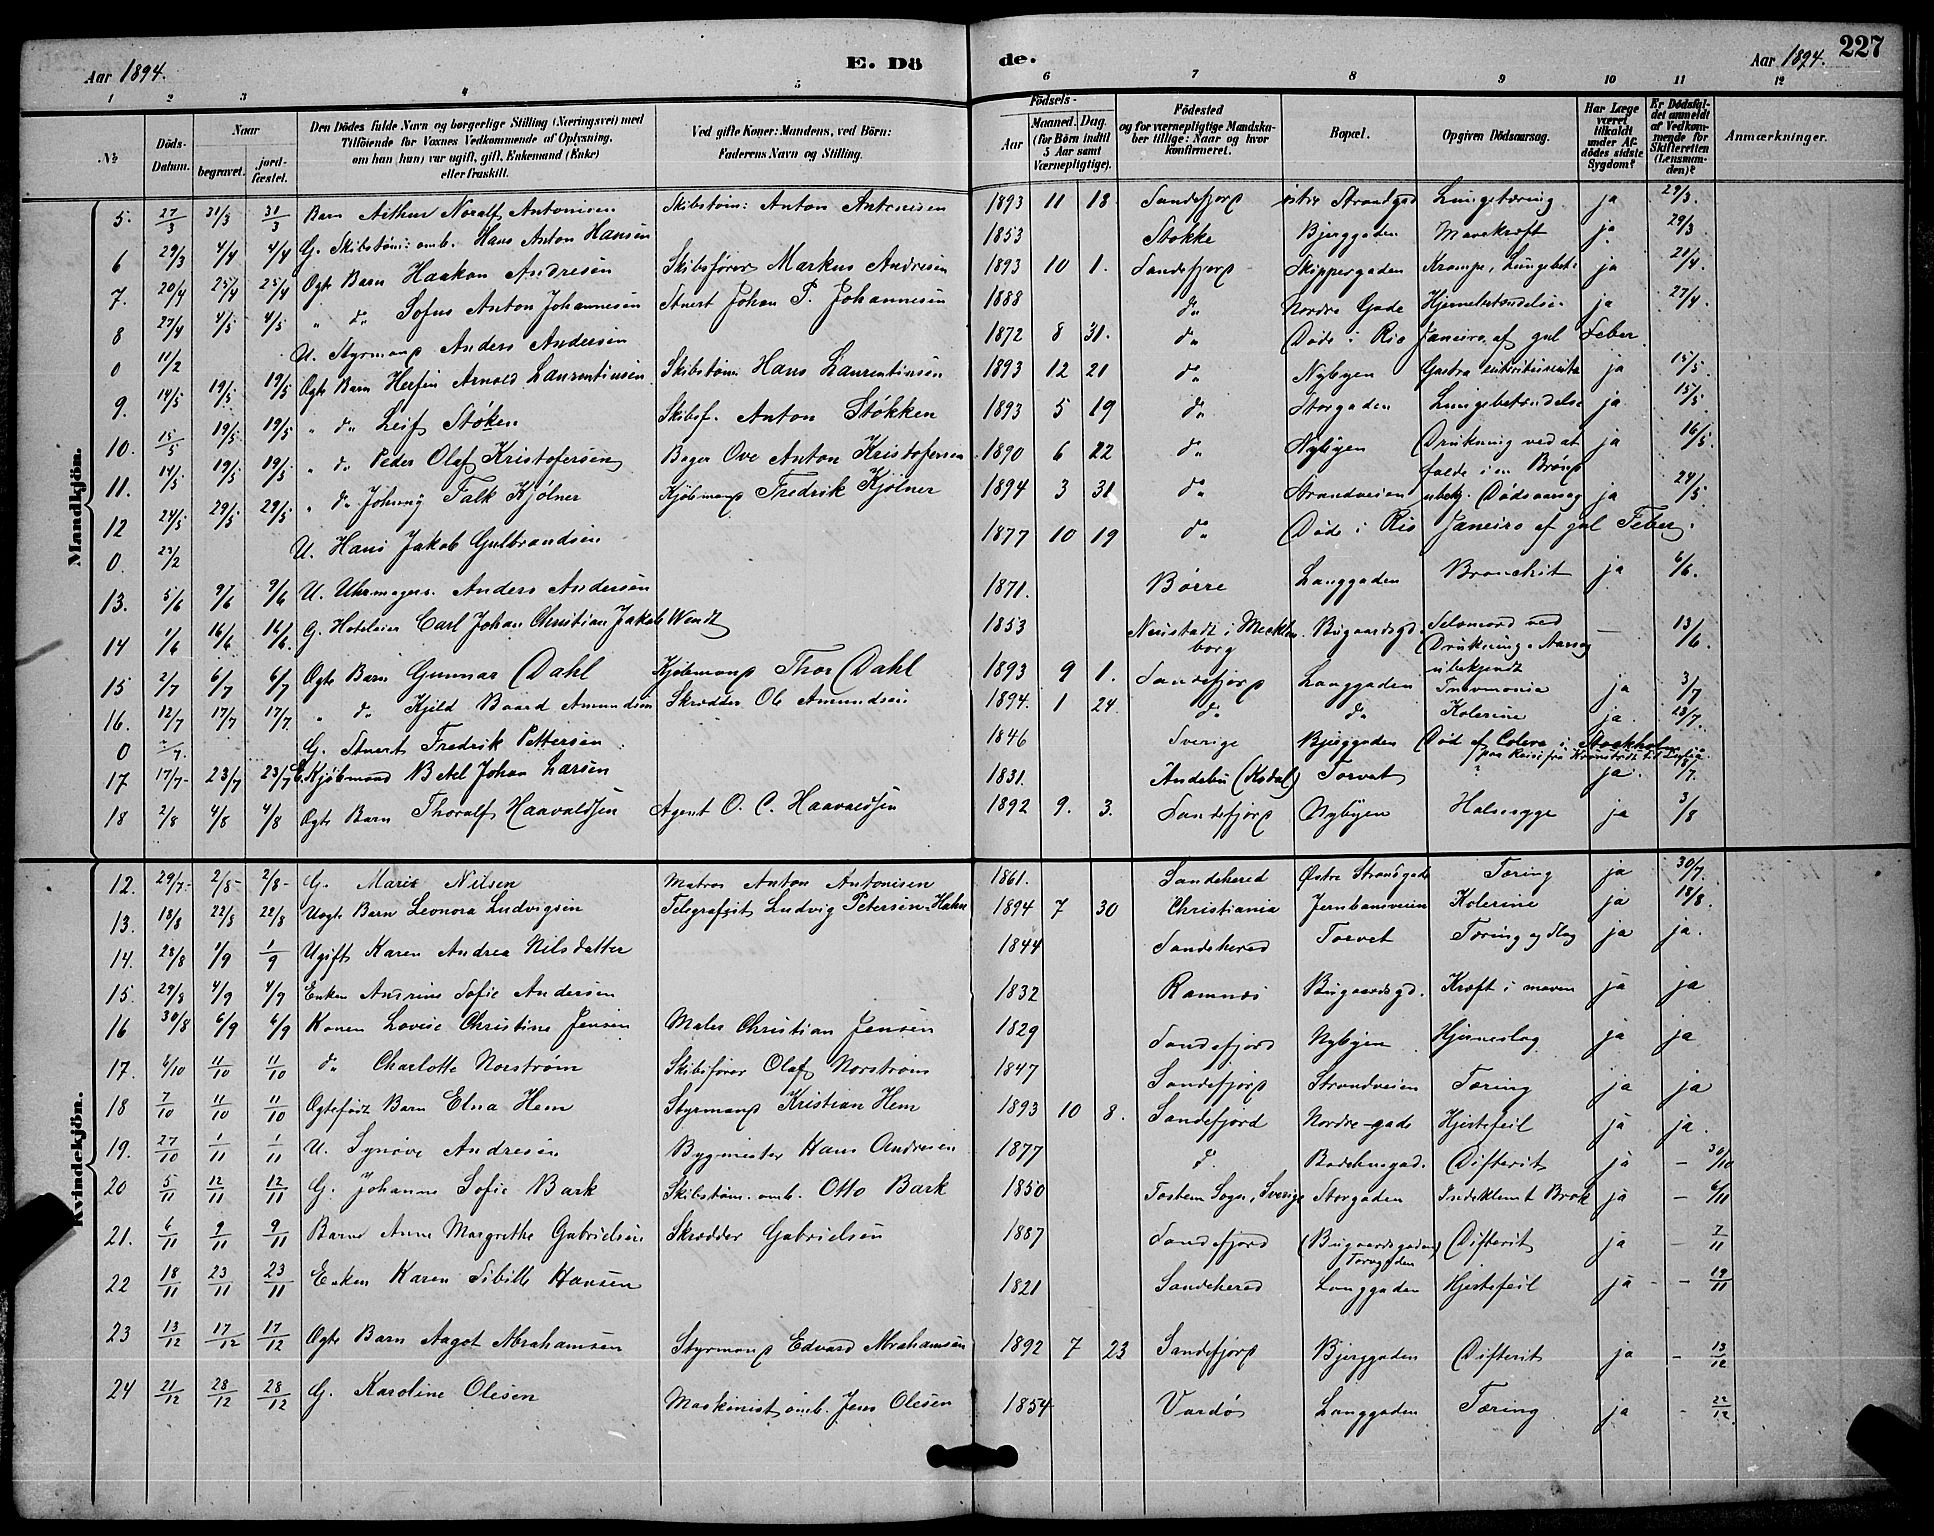 Aar 1894. E. Dö de. Aar 1894. 227
1 2 3 4 5 6 7 8 9 10 11 12
No
Döds-Datum.
Naar
begravet.
jord-fæstet.
Den Dödes fulde Navn og borgerlige Stilling (Næringsvei) med
Tilföiende for Voxnes Vedkommende af Oplysning,
om han (hun) var ugift, gift, Enkemand (Enke)
eller fraskilt.
Ved gifte Koner: Mandens, ved Börn:
Faderens Navn og Stilling.
Födsels-
Aar
Maaned. Dag.
(for Börn indtil
5 Aar samt
Værnepligtige).
Födested
og for værnepligtige Mandska-
ber tillige: Naar og hvor
konfirmeret.
Bopæl.
Opgiven Dödsaarsag.
Har Læge
været
tilkaldt
under Af-
dödes sidste
Sygdom?
Er Dödsfal-
det anmeldt
af Vedkom-
mende for
Skifteretten
(Lensman-
den)?
Anmærkninger.
Mandkjön.
5. 27/3 31/3 31/3 Barn Arthur Noralf Antonisen Skibstøm: Anton Antonisen 1893 11 18 Sandefjord østre Strandgad Lungetæring ja 29/3.
6 29/3 4/4 4/4 G. Skibstøm: omb. Hans Anton Hansen 1853 Stokke Bjerggaden Mavekræft ja 29/3
7. 20/4 25/4 25/4 Ogte Barn Haakon Andresen Skibsfører Markus Andresen 1893 10 1. Sandefjord Skippergaden Krampe, Lungebet: ja 21/4.
8 27/4 4/5 4/5 " do Sofus Anton Johannesen Stuert Johan P. Johannesen 1888 do Nordre Gade Hjernebetændelse ja 27/4.
0 11/2 U. Styrmand Anders Andersen 1872 8 31. do Døde i Rio Janeiro af gul Feber
9. 14/5 19/5 19/5 Ogte Barn Herfin Arnold Laurentiusen Skibstøm: Hans Laurentiusen 1893 12 21 do Nybyen Gastro ja 15/5.
10. 15/5 19/5 19/5 " do Leif Støken Skibsf. Anton Støkken 1893 5 19 do Storgaden Lungebetændelse ja 15/5.
11. 14/5 19/5 19/5 " do Peder Olaf Kristofersen Bager Ove Anton Kristofersen 1890 6 22 do Nybyen Drukning ved at ja 16/5.
falde i en Brønd
12 24/5 29/5 29/5 " do Johnny Falk Kjølner Kjøbmand Fredrik Kjølner 1894 3 31 do Strandveien ubekj. Dødsaarsag ja 24/5
0. 23/2 U. Hans Jakob Gulbrandsen 1877 10 19 do Døde i Rio Janeiro af gul Feber.
13. 5/6 9/6 9/6 U. Uhrmager. Anders Andersen 1871. Børre Langgaden Bronchit ja 6/6.
14 1/6 16/6 16/6. G. Hoteleier Carl Johan Christian Jakob Wendt 1853 Neustadt i Mecklen borg Bugaardsgd. Selvmord ved — 13/6.
Drukning. Aarsag
ubekjendt
15 2/7 6/7 6/7 Ogte Barn Gunnar Dahl Kjøbmand Thor Dahl 1893 9 1. Sandefjord Langgaden Pnevmonia ja 3/7
16. 12/7 17/7 17/7. " do Kjeld Baard Amundsen Skrædder Ole Amundsen 1894. 1 24. do do Kolerine ja. 23/7.
0 G. Stuert Fredrik Pettersen 1846 Sverige Bjerggaden Død af Colera i Stockholm
paa Reise fra Kronstadt til
17 17/7 23/7 23/7 E. Kjøbmand N. Axel Johan Larsen 1831. Andebu (Kodal) Torvet " ja.
18 2/8 4/8 4/8 Ogte Barn Thoralf Haavaldsen Agent O. C. Haavaldsen 1892 9. 3. Sandefjord Nybyen Halssyge ja 3/8
Kvindekjön.
12. 29/7 2/8 2/8 G. Marie Nilsen Matros Anton Antonisen 1861. Sandehered Østre Strandgade Tæring ja 30/7
13. 18/8 22/8 22/8 Uogte Barn Leonora Ludvigsen Telegrafist Ludvig Petersen-Hahn 1894 7 30 Christiania Jernbanveien Kolerine ja 18/8.
14. 28/8 1/9 1/9 Ugift Karen Andrea Nilsdatter 1844 Sandehered Torvet Tæring og Slag ja ja.
15. 29/8 4/9 4/9 Enken Andrine Sofie Andersen 1832 Ramnæs Bugaardsgd. Kræft i maven ja ja
16 30/8 6/9 6/9 Konen Lovise Christine Jensen Maler Christian Jensen 1829 Sandefjord Nybyen Hjerneslag ja ja
17. 6/10 11/10 11/10 do Charlotte Norstrøm Skibsfører Olaf Norstrøm 1847 Sandefjord Strandveien Tæring ja ja
18 7/10 11/10 11/10 Ogtefødt Barn Elna Hem Styrmand Kristian Hem 1893 10 8. Sandefjord Nordre-gade Hjertefeil ja ja.
19. 27/10 1/11 1/11 U. Synøve Andresen Bygmester Hans Andresen 1877 do Badehusgad. Difterit ja — 30/10
20 5/11 12/11 12/11 G. Johanne Sofie Bark Skibstøm. omb. Otto Bark 1850 Tostem Sogn, Sverige Storgaden Indeklemt Brok ja — 6/11
21. 6/11 9/11 9/11 Barne Anne Margrethe Gabrielsen Skrædder Gabrielsen 1887 Sandefjord (Bugaardsgaden) Torvgaden Difterit ja — 7/11
22 18/11 23/11 23/11 Enken Karen Sibille Hansen 1821 Sandehered Langgaden Hjertefeil ja — 19/11
23 13/12 17/12 17/12 Ogte Barn Aagot Abrahamsen Styrmand Edvard Abrahamsen 1892 7 23 Sandefjord Bjerggaden Difterit ja — 13/12
24 21/12 28/12 28/12 G. Karoline Olesen Maskinist omb. Jens Olesen 1854 Vardø Langgaden Tæring ja — 22/12